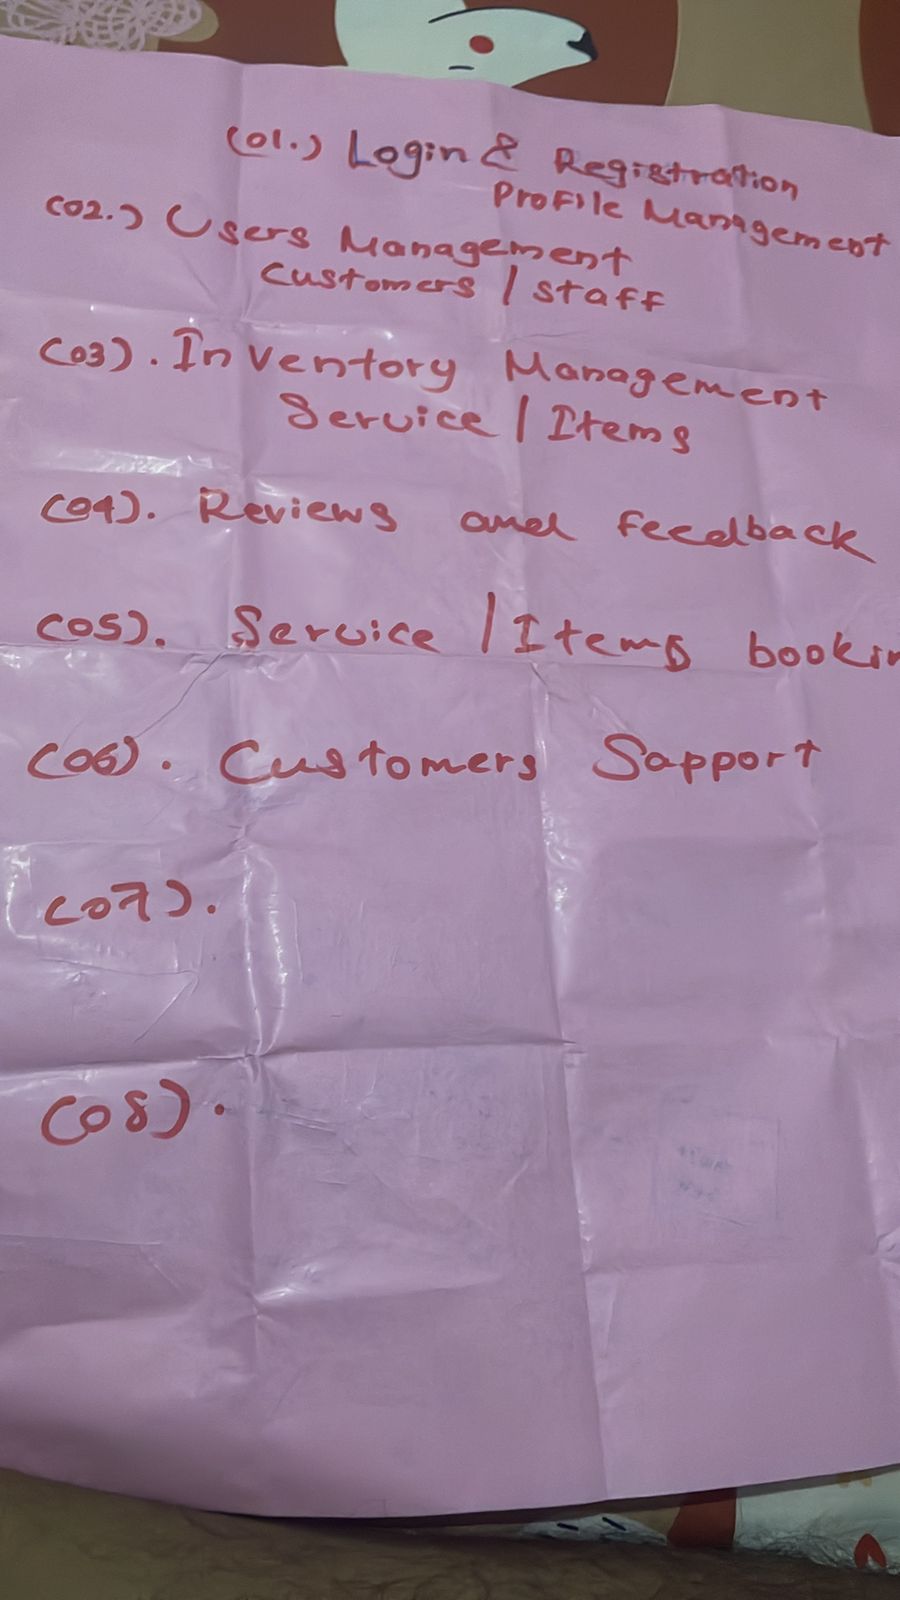 (01.) Login & Registration
Profile Management
(02.) Users Management
Customers / staff
(03). Inventory Management
Service / Items
(04). Reviews and feedback
(05). Service / Items
(06). Customers Sapport
(07).
(08).